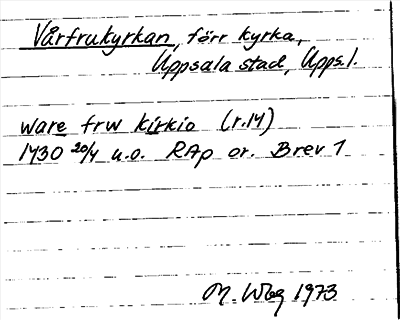 Vårfrukyrkan, förr kyrka,
Uppsala stad, Upps.l.
ware frw kirkio (r.14)
1430 20/4 u.o. RAp or. Brev 1
M. Wbg 1973